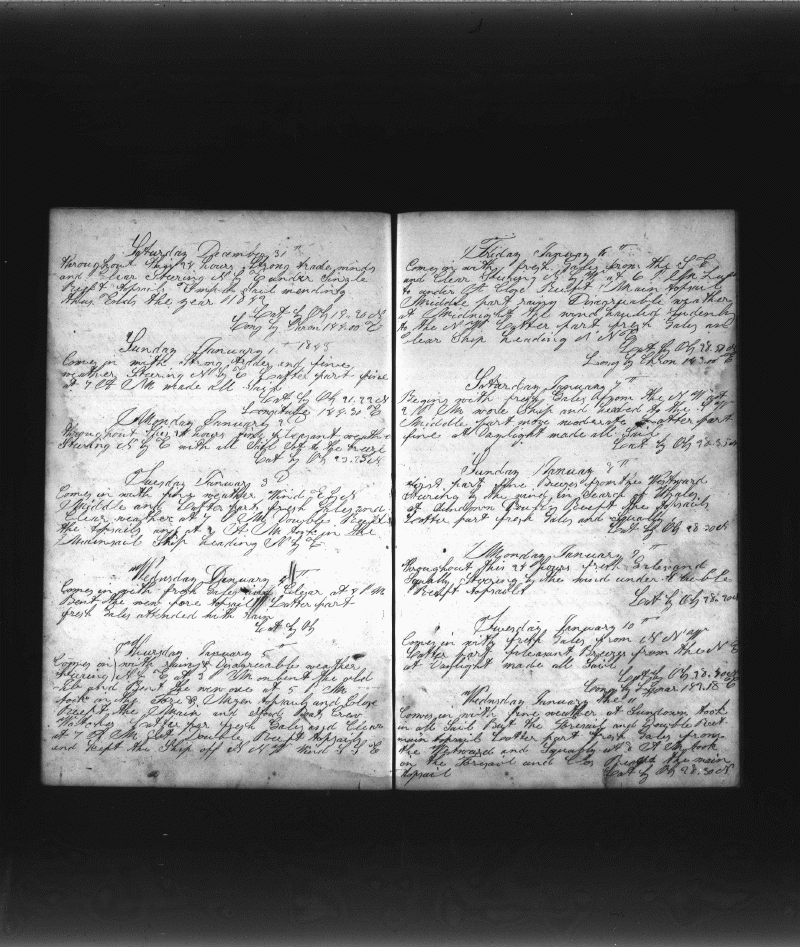 Saturday December 31st
Throughout this 24 hours strong trade winds
and Clear Steering N E under Single
Reeft Topsails Employed Sail mending
thus Ends the year 1842
Lat by Ob 18.20 N
Long by Chron 188.00 E
Sunday January 1st 1843
Comes in with Strong trades and fine
weather Steering N by E Latter part fine
at 7 A M made all Sail
Lat by Ob 21.22 N
Longitude 188.30 E
Monday January 2d
Throughout this 24 hours fine pleasant weather
Steering N by E with all Sail Set to the breeze
Lat by Ob 23.23 N
Tuesday January 3 D
Comes in with fine weather Wind
Middle and Latter part fresh Gales and
Clear weather at P M Double Reeft
the topsails and at P M took in the
Mainsail Ship heading N by E
Wednesday January 4th
Comes in with fresh Gales and Clear at 3 P M
Bent the new fore topsail Latter part
fresh Gales attended with rain
Lat by Ob
Thursday January 5th
Comes in with rainy Disagreeable weather
Steering N by E at 3 P M unbent the old
and Bent the new one at 5 P M
took in the Fore & Mizen topsails and Close
Reeft the Main
Latter part fresh Gales and Clear
at 7 A M Set Double Reeft topsails
and kept the Ship off N N W Wind
Friday January 6th
Comes in with fresh Gales from the S E
and Clear Steering N E at 6 P M
to under Close Reeft Main topsail
Middle part rainy Disagreeable weather
at Midnight the wind hauled Suddenly
to the N W Latter part fresh Gales and
Clear Ship heading N E
Lat by Ob 28.50 N
Long by Chron
Saturday January 7th
Begins with fresh Gales from the N W at
2 P M wore Ship and headed to the
Middle part more moderate Latter part
fine at Daylight made all Sail
Lat by Ob
Sunday January 8th
First part fine Breezes from the Westward
Steering by the wind in Search of Whales
at Sundown Double Reeft the topsails
Latter part fresh Gales and Squally
Lat by Ob 28.20 N
Monday January 9th
Throughout this 24 hours fresh Gales and
Squally Steering by the wind under Double
Reeft topsails
Lat by Ob 28.20 N
Tuesday January 10th
Comes in with fresh Gales from N N W
Latter part pleasant Breezes from the N E
at Daylight made all Sail
Lat by Ob 28.30 N
Long by Lunar
Wednesday January the
Comes in with fine weather at Sundown took
in all Sail But the Foresail and Double Reeft
main topsail Latter part fresh Gales from
the Westward and Squally at A M took
in the Foresail and Clos Reeft the main
topsail
Lat by Ob 28.30 N